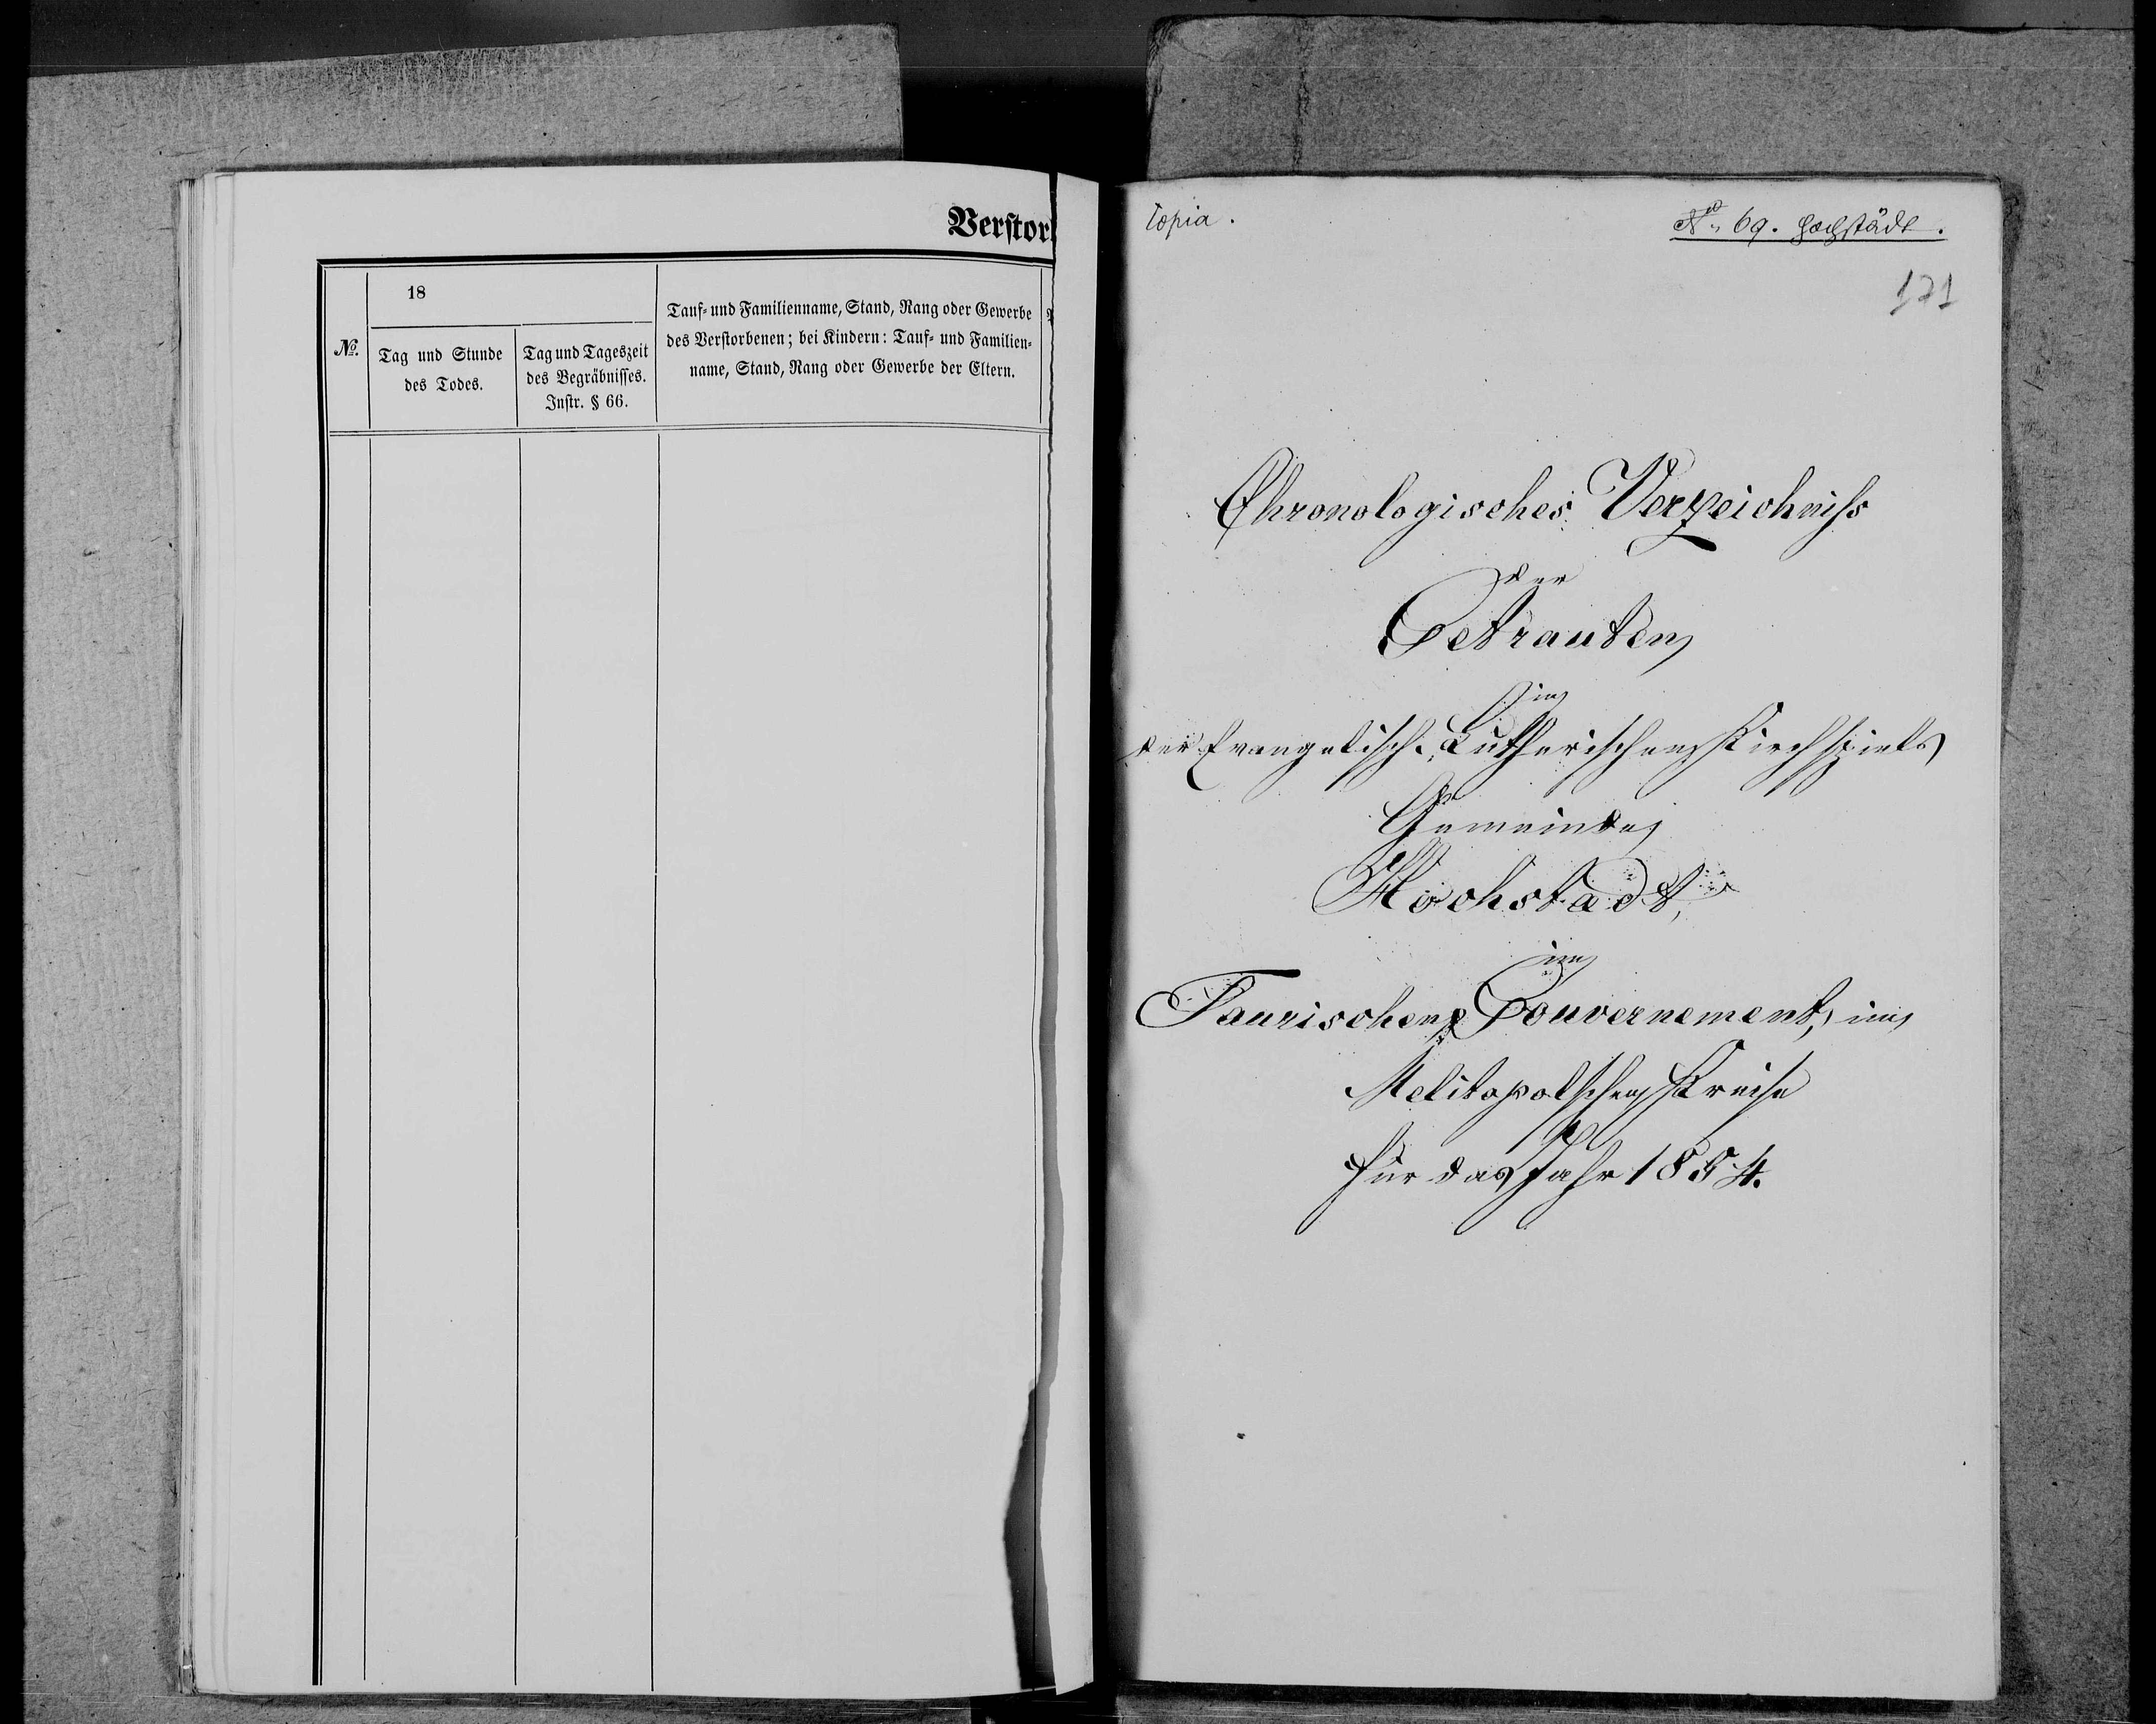 Verstor
No.
18
Tag und Stunde
des Todes.
Tag und Tageszeit
des Begräbnisses.
Instr. § 66.
Tauf- und Familienname, Stand, Rang oder Gewerbe
des Verstorbenen; bei Kindern: Tauf- und Familien-
name, Stand, Rang oder Gewerbe der Eltern.
Copia.
No 69. Hochstädt.
171
Chronologisches Verzeichniss
der
Getrauten
in
der Evangelisch-Lutherischen Kirchspiels
Gemeinde
Hochstadt,
im
Taurischen Gouvernement, im
Melitopolschen Kreise
für das Jahr 1854.